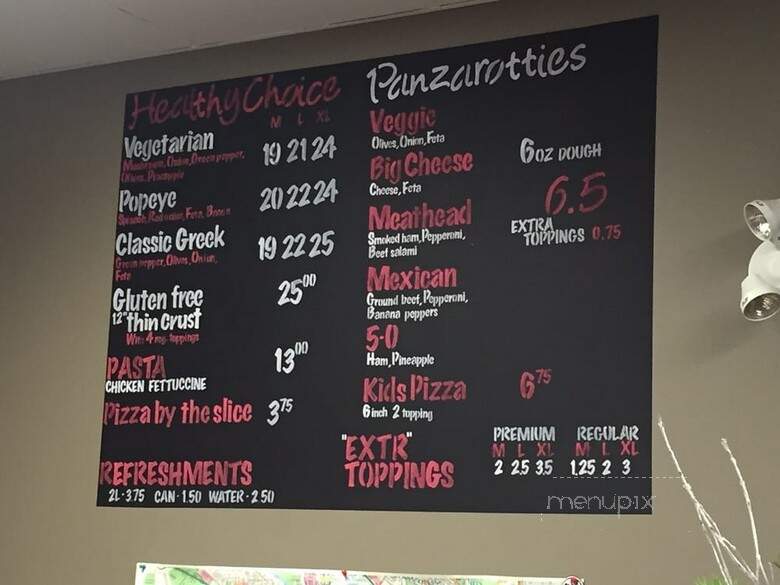 Healthy Choice
M L XL
Vegetarian 19 21 24
Mushroom, Onion, Green pepper,
Olives, Pineapple
Popeye 20 22 24
Spinach, Red onion, Feta, Bacon
Classic Greek 19 22 25
Green pepper, Olives, Onion,
Feta
Gluten free 25⁰⁰
12" thin crust
With 4 reg. toppings
PASTA 13⁰⁰
CHICKEN FETTUCCINE
Pizza by the slice 3⁷⁵
REFRESHMENTS
2L - 3.75 CAN - 1.50 WATER - 2.50
Panzarotties
Veggie
Olives, Onion, Feta
Big Cheese
Cheese, Feta
Meathead
Smoked ham, Pepperoni,
Beef salami
Mexican
Ground beef, Pepperoni,
Banana peppers
5-0
Ham, Pineapple
6oz DOUGH
6.5
EXTRA
TOPPINGS 0.75
Kids Pizza 6⁷⁵
6 inch 2 topping
"EXTR"
TOPPINGS
PREMIUM REGULAR
M L XL M L XL
2 2.5 3.5 1.25 2 3
menupix